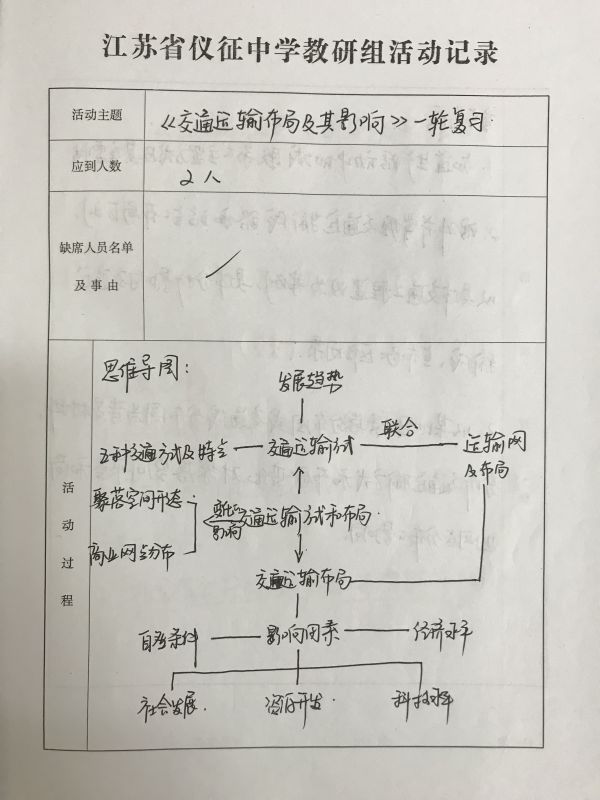 江苏省仪征中学教研组活动记录
活动主题
《交通运输布局及其影响》一轮复习.
应到人数
2人
缺席人员名单
及事由
活动过程
思维导图：
发展趋势
五种交通方式及特点
交通运输方式
联合
运输网
及布局
聚落空间形态
变化
影响
交通运输方式和布局
商业网点分布
交通运输布局
自然条件
影响因素
经济水平
社会发展.
资源开发.
科技水平